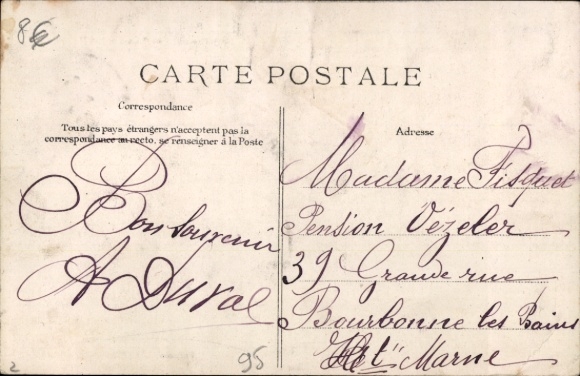 8€
CARTE POSTALE
Correspondance
Tous les pays étrangers n'acceptent pas la
correspondance au recto, se renseigner à la Poste
Bon souvenir
A Duval
Adresse
Madame Fisquet
Pension Vézeler
39 Grande rue
Bourbonne les Bains
Hte Marne
95
2